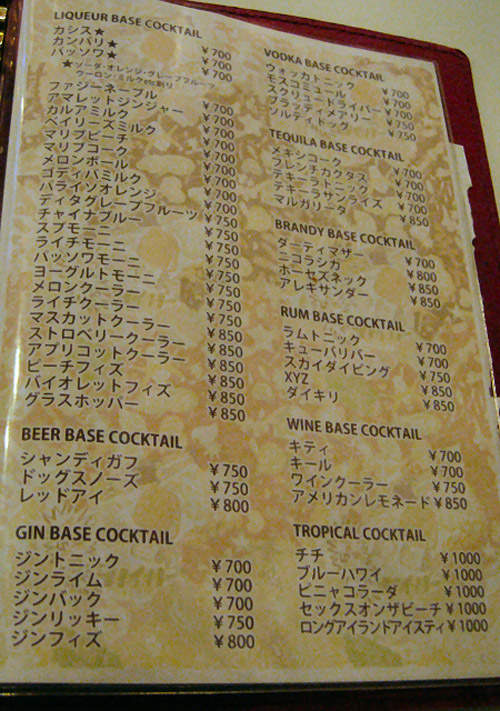 LIQUEUR BASE COCKTAIL
カシス★ ¥700
カンパリ★ ¥700
パッソワ★ ¥700
★ソーダ・オレンジ・グレープフルーツ
ウーロン・ミルクで割り
ファジーネーブル ¥700
アマレットジンジャー ¥700
カルアミルク ¥700
ベイリーズミルク ¥700
マリブピーチ ¥700
マリブコーク ¥700
メロンボール ¥700
ゴディバミルク ¥700
パライソオレンジ ¥700
ディタグレープフルーツ ¥700
チャイナブルー ¥750
スプモーニ ¥750
ライチモーニ ¥750
パッソワモーニ ¥750
ヨーグルトモーニ ¥750
メロンクーラー ¥750
ライチクーラー ¥750
マスカットクーラー ¥850
ストロベリークーラー ¥850
アプリコットクーラー ¥850
ピーチフィズ ¥850
バイオレットフィズ ¥850
グラスホッパー ¥850
BEER BASE COCKTAIL
シャンディガフ ¥750
ドッグスノーズ ¥750
レッドアイ ¥800
GIN BASE COCKTAIL
ジントニック ¥700
ジンライム ¥700
ジンバック ¥700
ジンリッキー ¥750
ジンフィズ ¥800
VODKA BASE COCKTAIL
ウォッカトニック ¥700
モスコミュール ¥700
スクリュードライバー ¥700
ブラッディメアリー ¥750
ソルティドッグ ¥750
TEQUILA BASE COCKTAIL
メキシコーク ¥700
フレンチカクタス ¥700
テキーラトニック ¥700
テキーラサンライズ ¥700
マルガリータ ¥850
BRANDY BASE COCKTAIL
ダーティマザー ¥700
ニコラシカ ¥800
ホーセズネック ¥850
アレキサンダー ¥850
RUM BASE COCKTAIL
ラムトニック ¥700
キューバリバー ¥700
スカイダイビング ¥750
XYZ ¥850
ダイキリ ¥850
WINE BASE COCKTAIL
キティ ¥700
キール ¥700
ワインクーラー ¥750
アメリカンレモネード ¥850
TROPICAL COCKTAIL
チチ ¥1000
ブルーハワイ ¥1000
ピニャコラーダ ¥1000
セックスオンザビーチ ¥1000
ロングアイランドアイスティ ¥1000